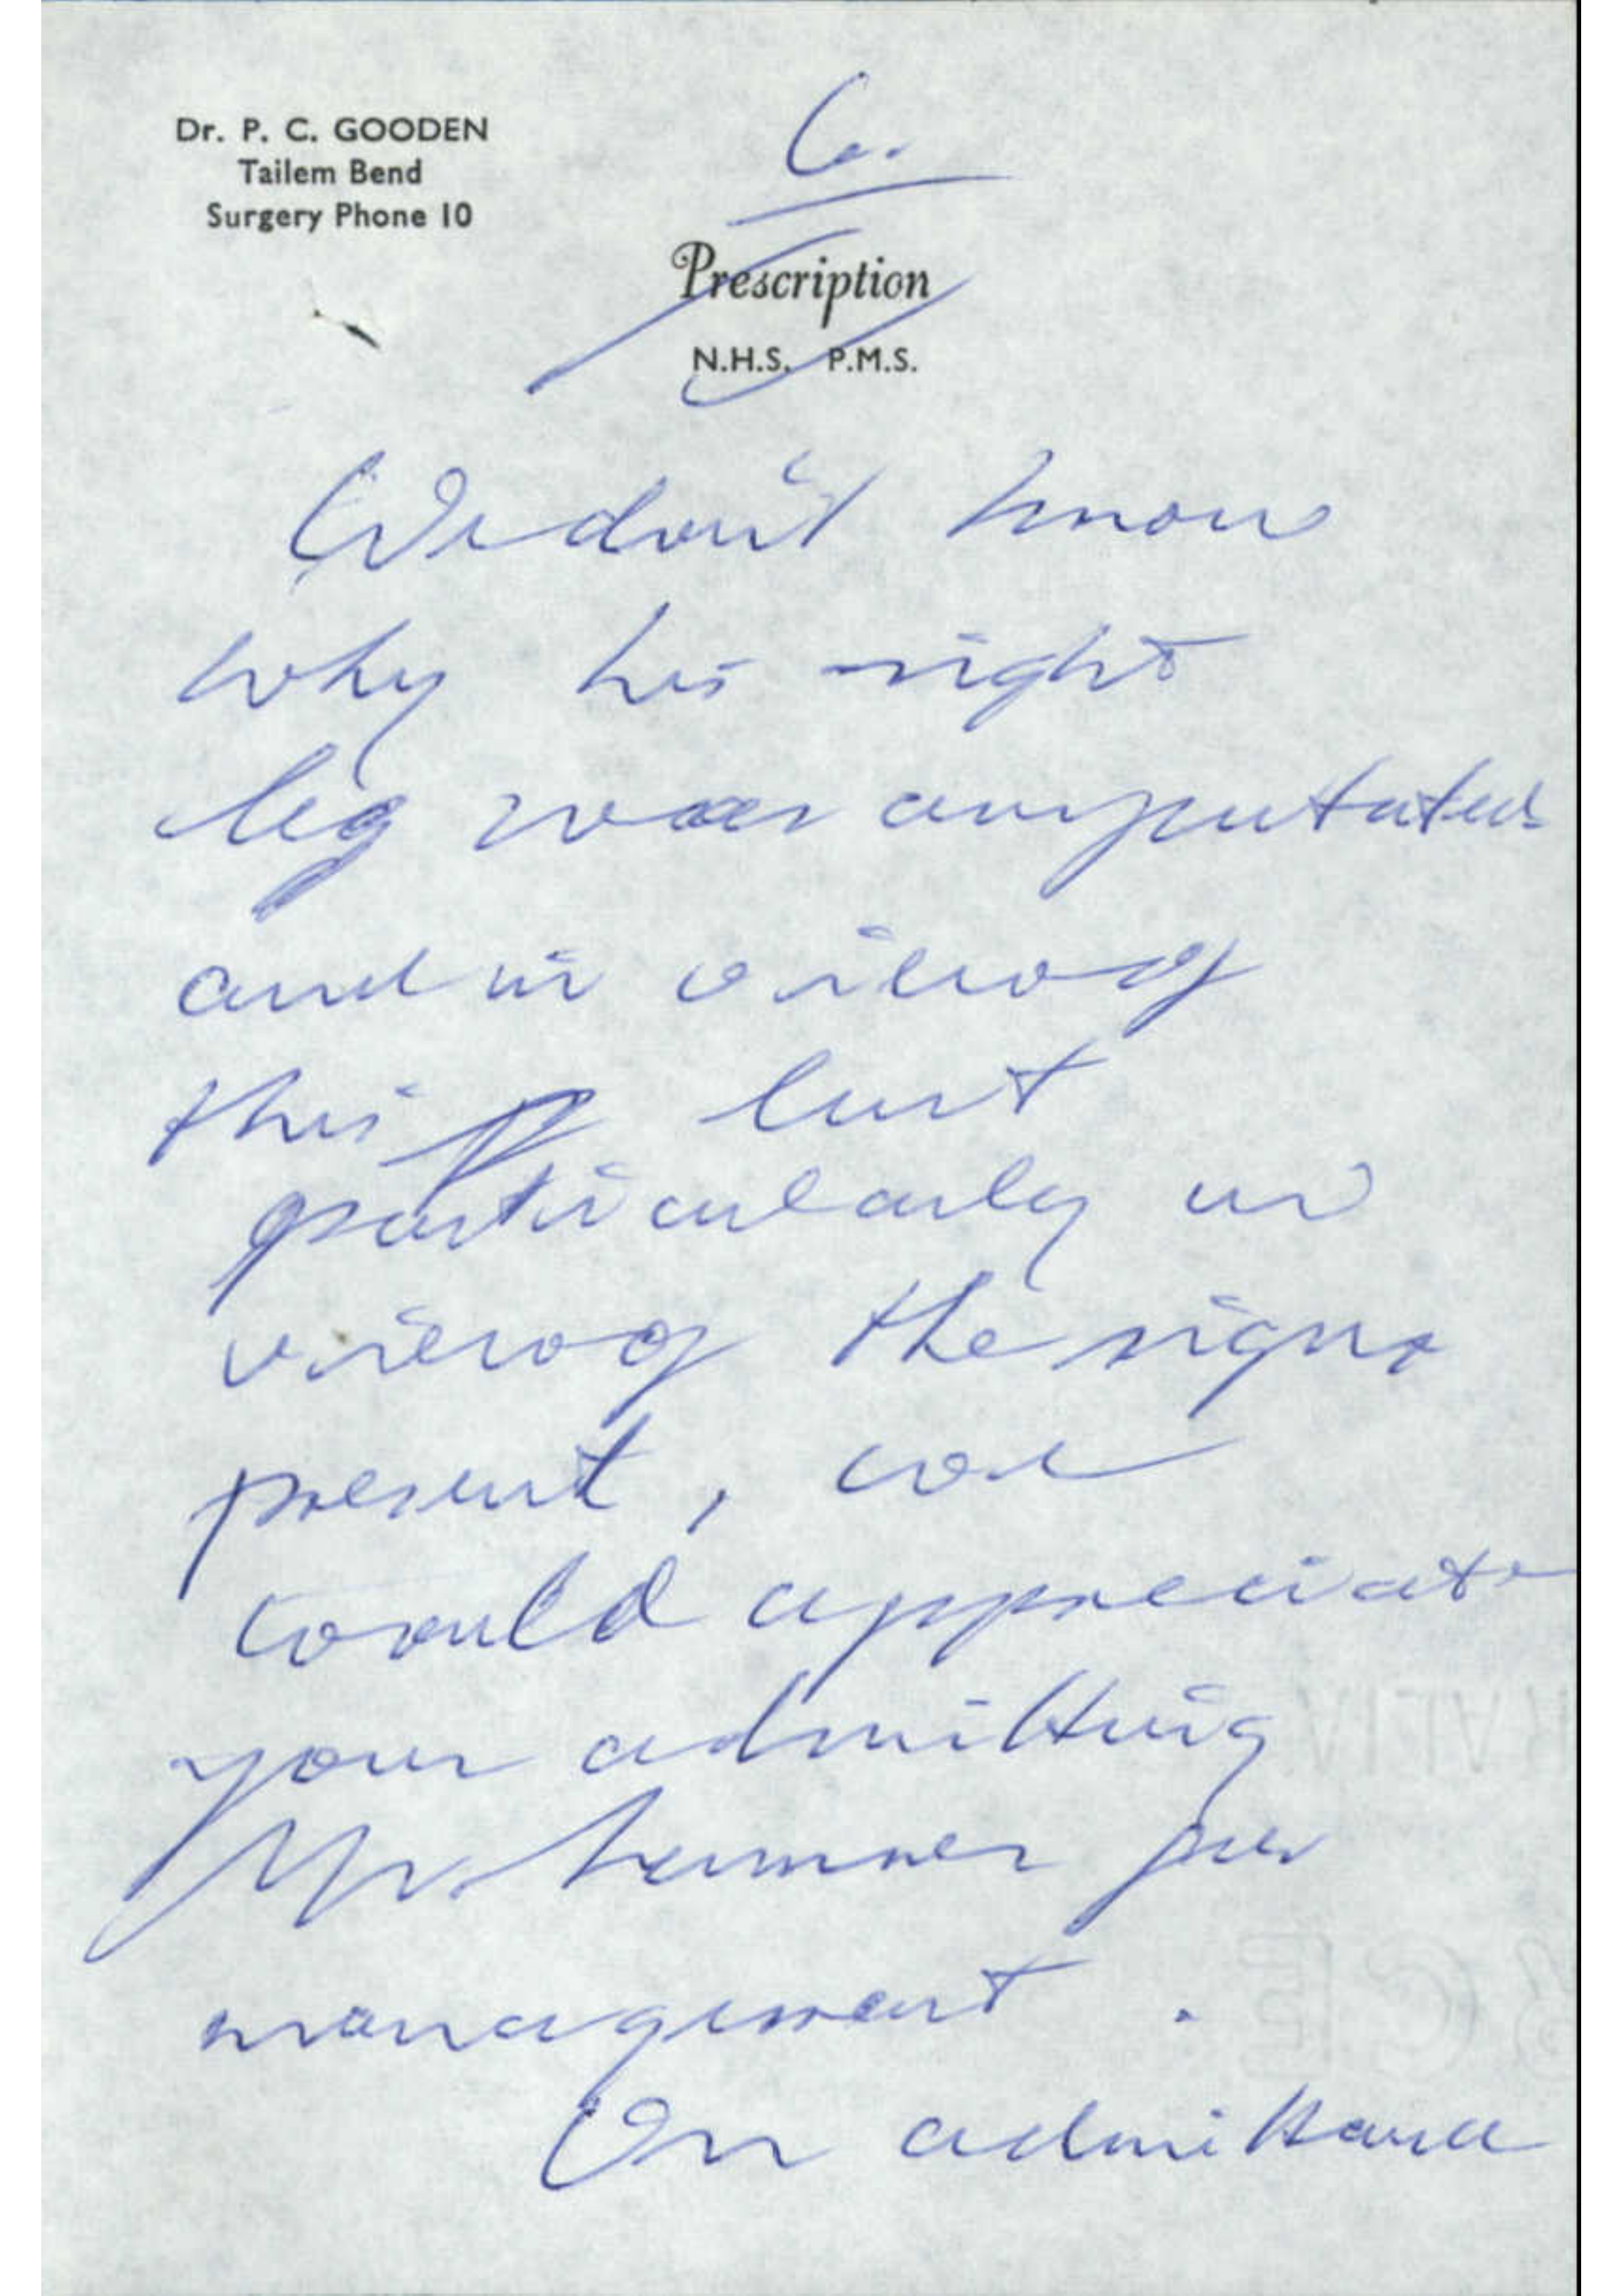 Dr. P. C. GOODEN
Tailem Bend
Surgery Phone 10
6.
Prescription
N.H.S. P.M.S.
We don't know
why his right
leg was amputated
and in view of
this but
particularly in
view of the signs
present, we
would appreciate
your admitting
Mr. for
management.
On admittance